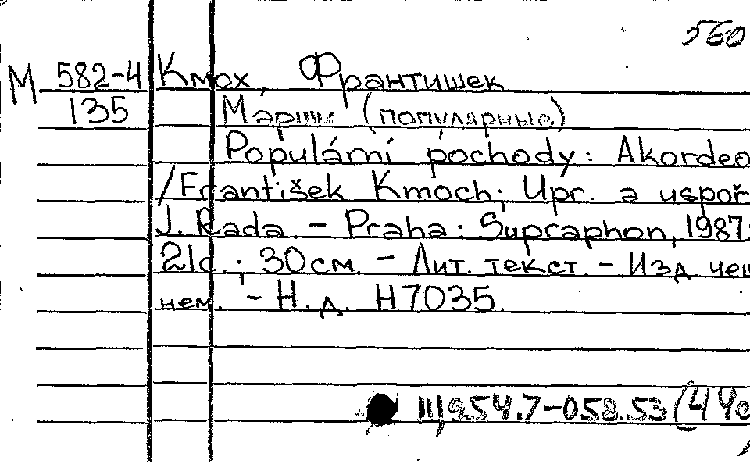 560
М 582-4 Кмох, Франтишек
135 Марши (популярные)
Populární pochody: Akordeo
/František Kmoch; Upr. a uspoř
J. Rada. - Praha: Supraphon, 1987.
21c.; 30см. - Лит. текст. - Изд. чеш
нем. - Н. д. H7035.
Щ954.7-058.53(4Че